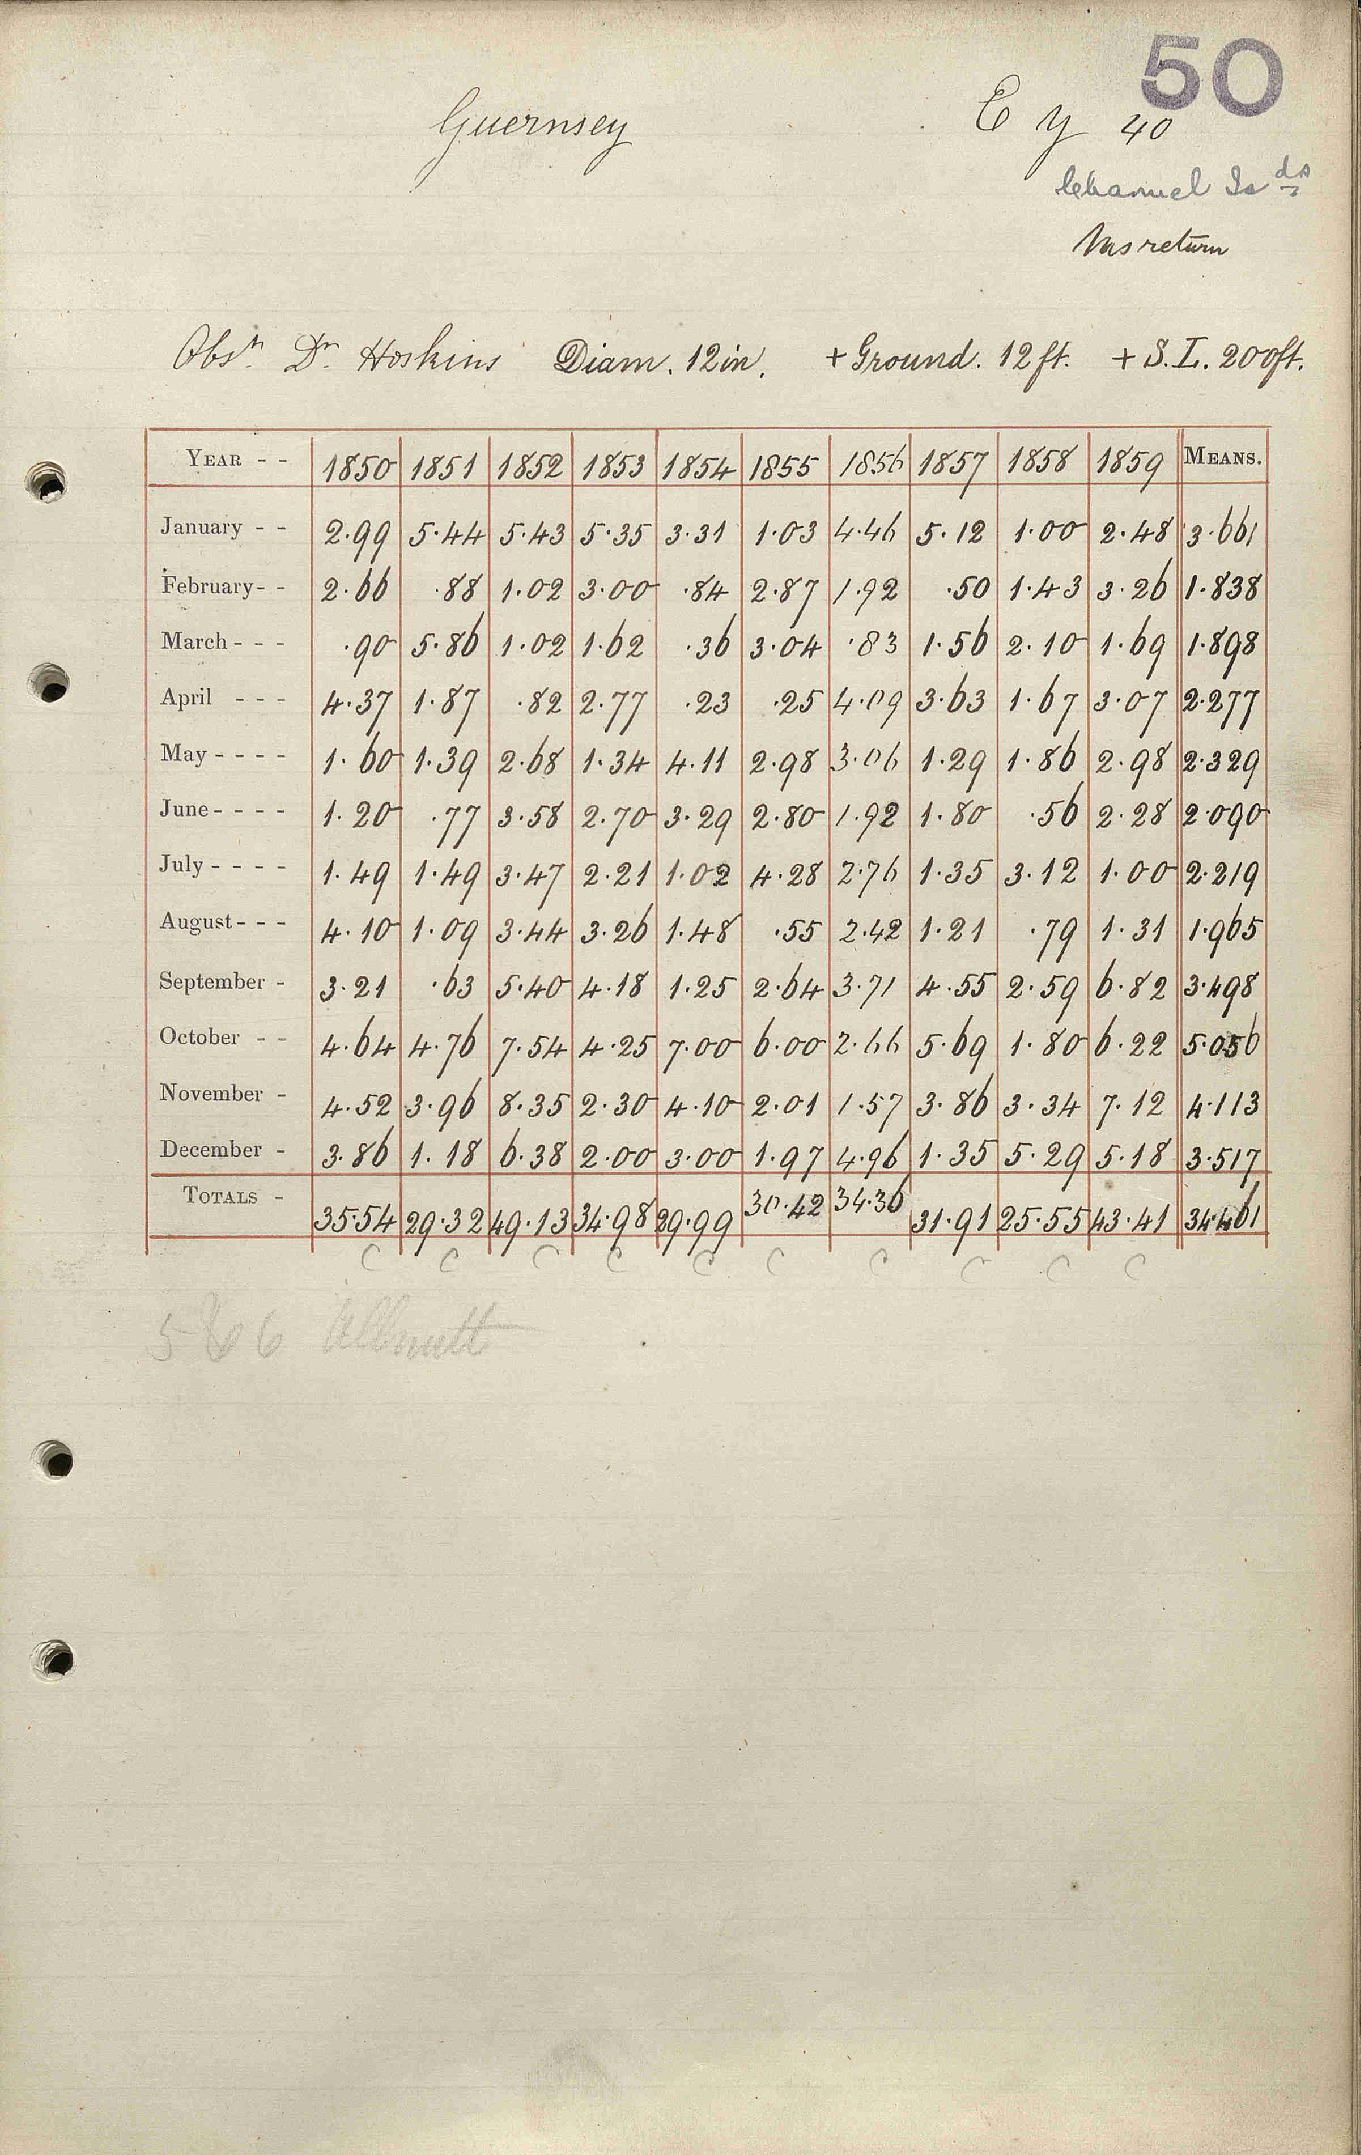 50
Guernsey E y 40
Channel Is ds
Ms return
Obsr. Dr. Hoskins Diam. 12 in. + Ground. 12 ft. + S.L. 200 ft.
YEAR - - 1850 1851 1852 1853 1854 1855 1856 1857 1858 1859 MEANS.
January - - 2·99 5·44 5·43 5·35 3·31 1·03 4·46 5·12 1·00 2·48 3·661
February - - 2·66 ·88 1·02 3·00 ·84 2·87 1·92 ·50 1·43 3·26 1·838
March - - - ·90 5·86 1·02 1·62 ·36 3·04 ·83 1·56 2·10 1·69 1·898
April - - - 4·37 1·87 ·82 2·77 ·23 ·25 4·09 3·63 1·67 3·07 2·277
May - - - - 1·60 1·39 2·68 1·34 4·11 2·98 3·06 1·29 1·86 2·98 2·329
June - - - - 1·20 ·77 3·58 2·70 3·29 2·80 1·92 1·80 ·56 2·28 2·090
July - - - - 1·49 1·49 3·47 2·21 1·02 4·28 2·76 1·35 3·12 1·00 2·219
August - - - 4·10 1·09 3·44 3·26 1·48 ·55 2·42 1·21 ·79 1·31 1·965
September - 3·21 ·63 5·40 4·18 1·25 2·64 3·71 4·55 2·59 6·82 3·498
October - - 4·64 4·76 7·54 4·25 7·00 6·00 2·66 5·69 1·80 6·22 5·056
November - 4·52 3·96 8·35 2·30 4·10 2·01 1·57 3·86 3·34 7·12 4·113
December - 3·86 1·18 6·38 2·00 3·00 1·97 4·96 1·35 5·29 5·18 3·517
TOTALS - 35·54 29·32 49·13 34·98 29·99 30·42 34·36 31·91 25·55 43·41 34·461
C C C C C C C C C C
5 & 6 Allnutt